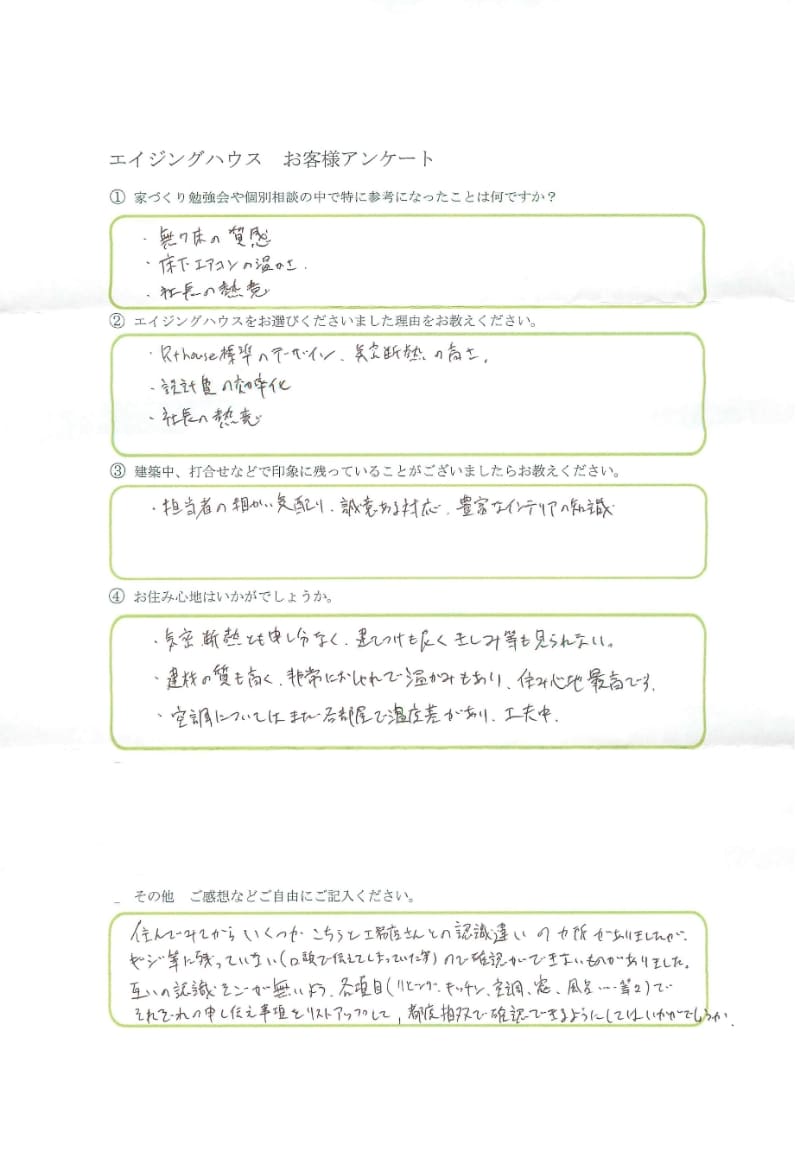 エイジングハウス お客様アンケート
① 家づくり勉強会や個別相談の中で特に参考になったことは何ですか？
・無ク床の質感
・床下エアコンの温かさ.
・社長の熱意
② エイジングハウスをお選びくださいました理由をお教えください。
・R+house標準のデザイン、気密断熱の高さ。
・設計費の効率化
・社長の熱意
③ 建築中、打合せなどで印象に残っていることがございましたらお教えください。
・担当者の細かい気配り、誠意ある対応、豊富なインテリアの知識
④ お住み心地はいかがでしょうか。
・気密断熱とも申し分なく、建てつけも良くきしみ等も見られない。
・建材の質も高く、非常におしゃれで温かみもあり、住み心地最高です。
・空調についてはまだ各部屋で温度差があり、工夫中.
その他 ご感想などご自由にご記入ください。
住んでみてからいくつか こちらと工務店さんとの認識違いのカ所がありましたが、
等に残っていない(口頭で伝えてしまっていた等)ので確認ができないものがありました。
互いの認識そごが無いよう、各項目(リビング、キッチン、空調、窓、風呂…等々)で
それぞれの申し伝え事項をリストアップして、都度相双で確認できるようにしてはいかがでしょうか.